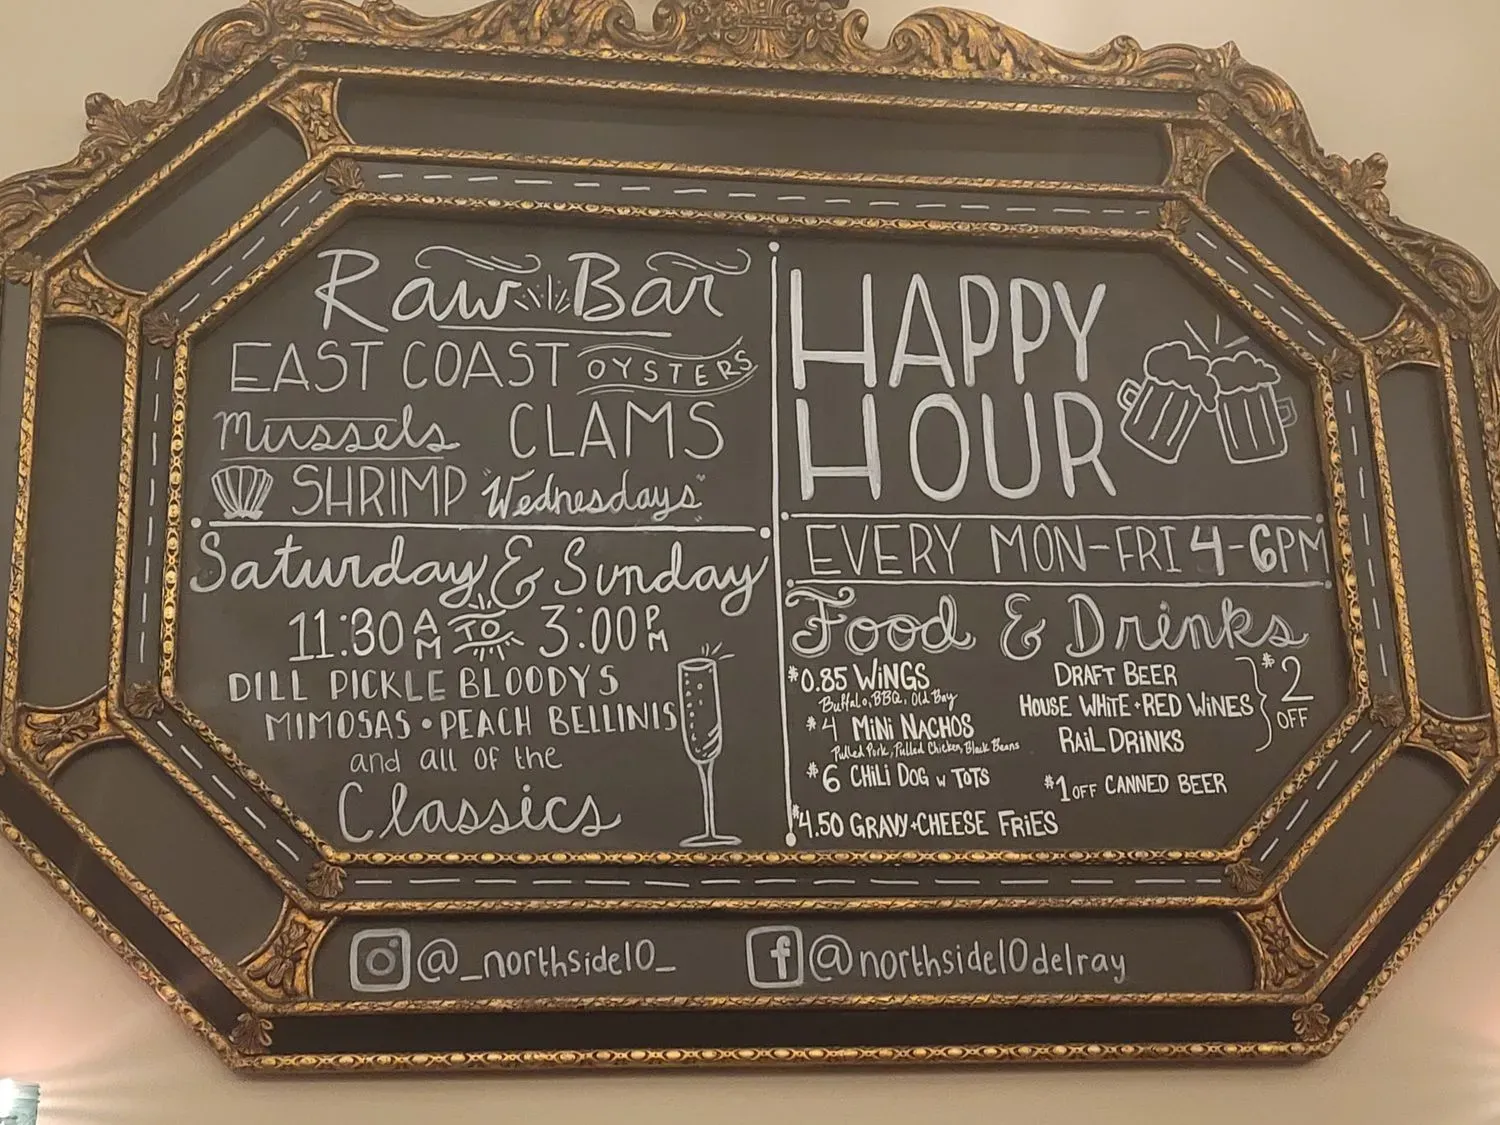 Raw Bar
EAST COAST OYSTERS
Mussels CLAMS
SHRIMP "Wednesdays"
Saturday & Sunday
11:30 AM TO 3:00 PM
DILL PICKLE BLOODYS
MIMOSAS • PEACH BELLINIS
and all of the
Classics
HAPPY
HOUR
EVERY MON-FRI 4-6PM
Food & Drinks
$0.85 WiNGS
Buffalo, BBQ, Old Bay
$4 MiNi NACHOS
Pulled Pork, Pulled Chicken, Black Beans
$6 CHiLi DOG w TOTS
$4.50 GRAVY+CHEESE FRiES
DRAFT BEER
HOUSE WHiTE + RED WiNES
RAiL DRiNKS
$2
OFF
$1 OFF CANNED BEER
@_northside10_
f @northside10delray